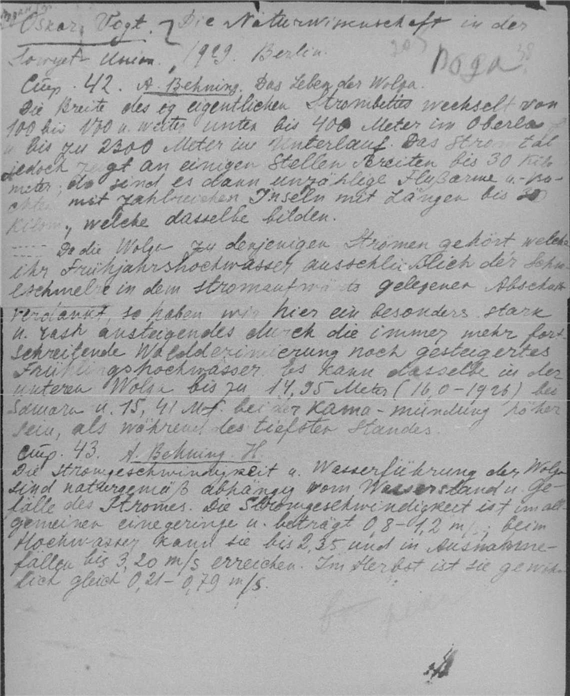 Oskar Vogt. Die Naturwissenschaft in der
Sowjet-Union. 1929. Berlin.
вода
Стр. 42. A. Behning. Das Leben der Wolga.
Die Breite des eigentlichen Strombettes wechselt von
100 bis u. weiter unten bis 400 Meter im Oberlauf
u. bis zu 2300 Meter im Unterlauf. Das Stromtal
jedoch zeigt an einigen Stellen Breiten bis 30 Kilo
meter; da sind es dann unzählige Flußarme u.
mit zahlreichen Inseln mit Längen bis
Kilom, welche dasselbe bilden.
Da die Wolga zu denjenigen Strömen gehört welche
ihr Frühjahrshochwasser ausschließlich der Schne
eschmelze in dem stromaufwärts gelegener Abschnitt
verdankt, so haben wir hier ein besonders stark
u. rasch ansteigendes durch die immer mehr fort
schreitende Walddezimierung noch gesteigertes
Frühlingshochwasser. Es kann dasselbe in der
unteren Wolga bis zu 14,95 Meter (16,0-1926) bei
Samara u. 15,41 M. bei der Kama-mündung höher
sein, als während des tiefsten Standes.
Стр. 43. A. Behning H.
Die Stromgeschwindigkeit u. Wasserführung der Wolga
sind naturgemäß abhängig vom Wasserstand u. Ge-
fälle des Stromes. Die Stromgeschwindigkeit ist im all-
gemeinen eine geringe u. beträgt 0,8-1,2 m/s; beim
Hochwasser kann sie bis 2,35 und in Ausnahme-
fällen bis 3,20 m/s erreichen. Im Herbst ist sie gewöhn
lich gleich 0,21-0,79 m/s.